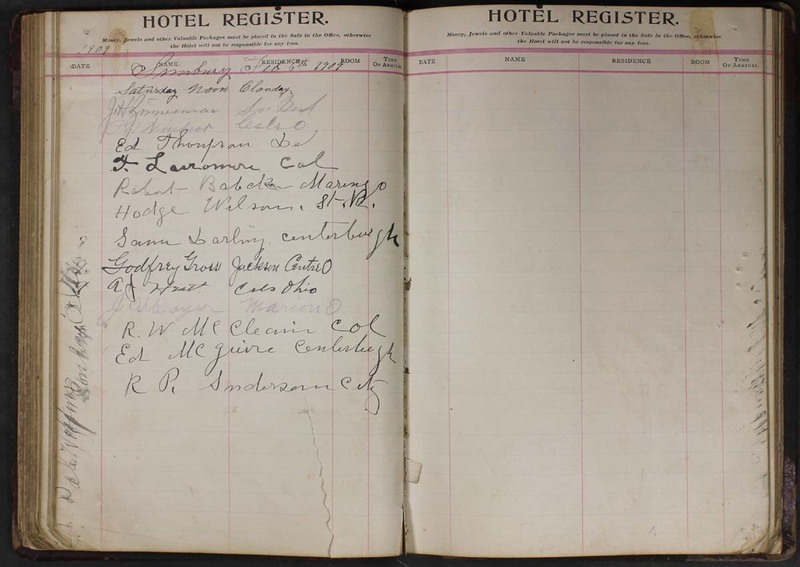 HOTEL REGISTER.
Money, Jewels and other Valuable Packages must be placed in the Safe in the Office, otherwise
the Hotel will not be responsible for any loss.
1909
DATE NAME RESIDENCE ROOM TIME OF ARRIVAL
Sunbury Feb 6th 1909
Saturday Noon Cloudy
J H Zimmerman
Cols O
Ed Thompson Del
F Col
Robert Babcock Marengo
Hodge Wilson. St. R.
Samu Darling centerburgh
Godfrey Gross Jackson Centre O
Cols Ohio
Marion O
R. W Mc Cleain Col
Ed Mc guire Centerburgh
R P. Anderson City
HOTEL REGISTER.
Money, Jewels and other Valuable Packages must be placed in the Safe in the Office, otherwise
the Hotel will not be responsible for any loss.
DATE NAME RESIDENCE ROOM TIME OF ARRIVAL